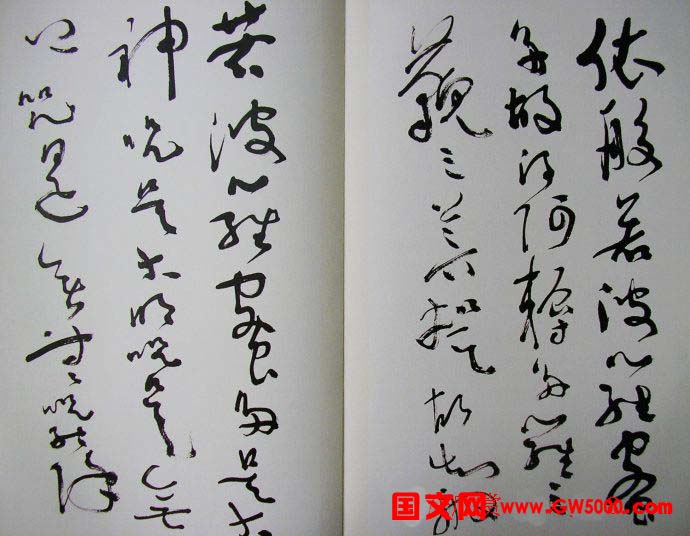 依般若波羅蜜
多故得阿耨多羅三
藐三菩提故知般
若波羅蜜多是大
神呪是大明呪是無
上呪是無等等呪能除
国文网 www.GW5000.com